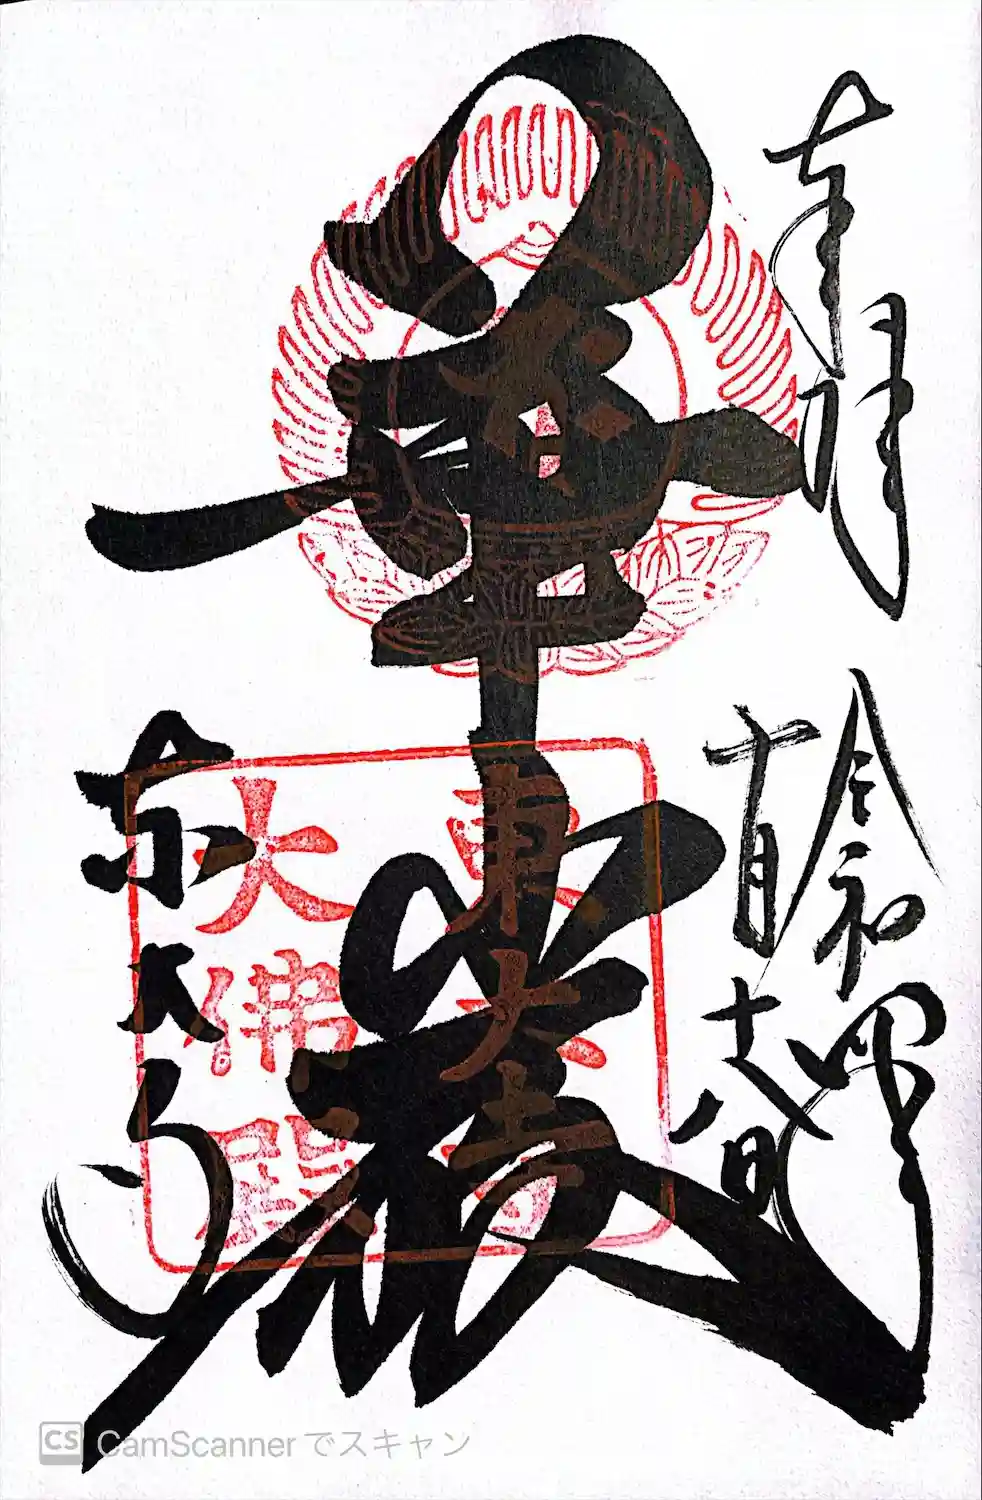 奉拝
令和四年
華厳
東大寺
東大寺
大佛殿
CS CamScannerでスキャン